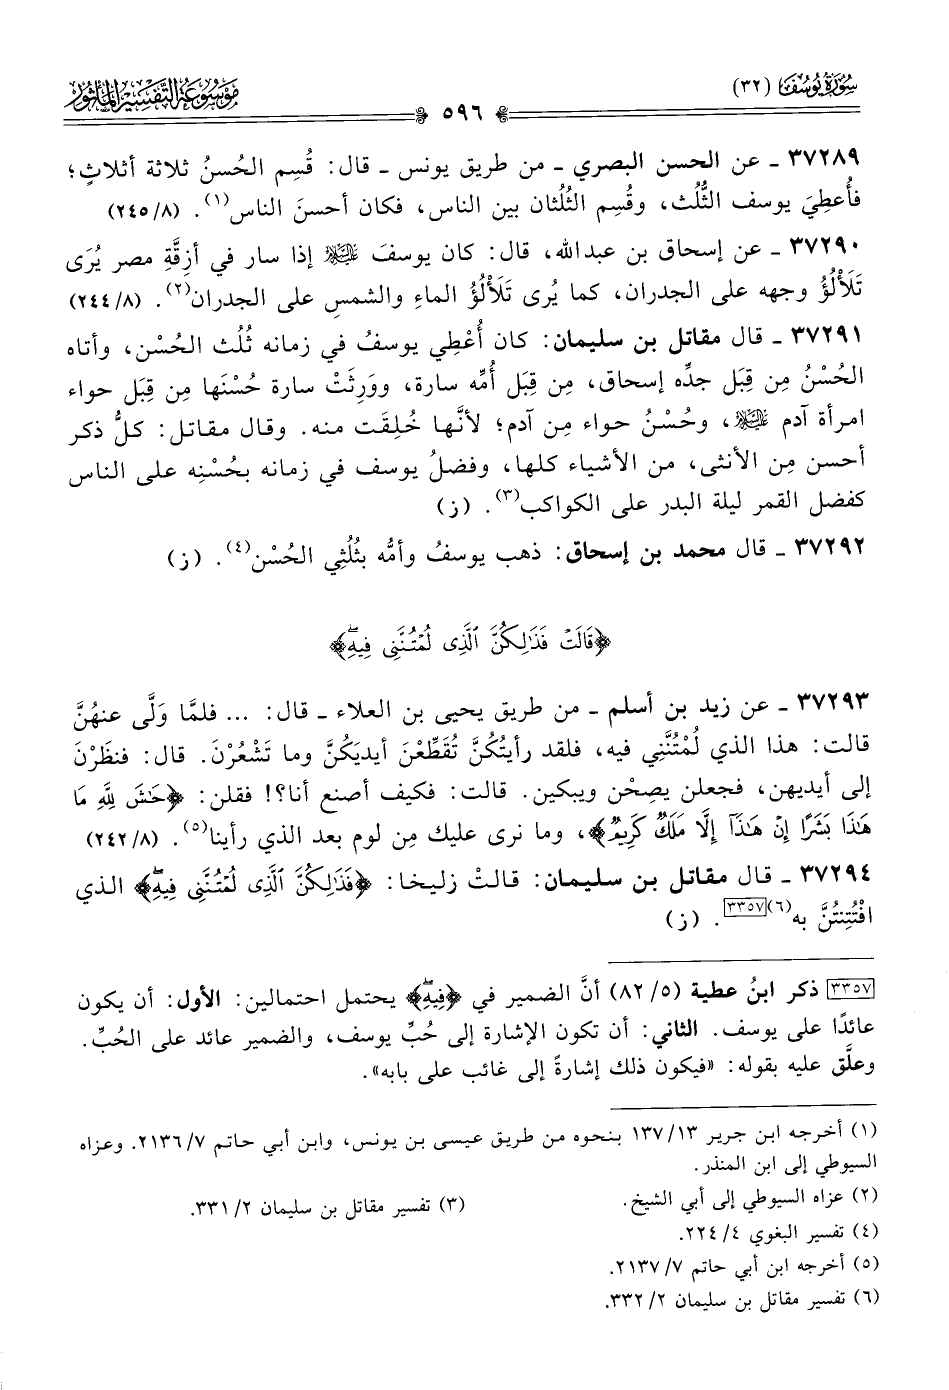 سُورَةُ يُوسُفَ (٣٢)
موسوعة التفسير المأثور
٥٩٦
٣٧٢٨٩ ـ عن الحسن البصري ـ من طريق يونس ـ قال: قُسِم الحُسنُ ثلاثة أثلاثٍ؛
فأُعطِيَ يوسف الثُّلث، وقُسِم الثُلُثان بين الناس، فكان أحسنَ الناس(١). (٢٤٥/٨)
٣٧٢٩٠ ـ عن إسحاق بن عبدالله، قال: كان يوسفَ عليه السلام إذا سار في أزِقَّةِ مصر يُرَى
تَلَأْلُؤُ وجهه على الجدران، كما يُرى تَلَأْلُؤُ الماءِ والشمسِ على الجدران(٢). (٢٤٤/٨)
٣٧٢٩١ ـ قال مقاتل بن سليمان: كان أُعْطِي يوسفُ في زمانه ثُلُث الحُسْن، وأتاه
الحُسْنُ مِن قِبَل جدِّه إسحاق، مِن قِبَل أُمِّه سارة، ووَرِثَتْ سارة حُسْنَها مِن قِبَل حواء
امرأة آدم عليه السلام، وحُسْنُ حواء مِن آدم؛ لأنَّها خُلِقَت منه. وقال مقاتل: كلُّ ذكر
أحسن مِن الأنثى، من الأشياء كلها، وفضلُ يوسف في زمانه بحُسْنِه على الناس
كفضل القمر ليلة البدر على الكواكب(٣). (ز)
٣٧٢٩٢ ـ قال محمد بن إسحاق: ذهب يوسفُ وأمُّه بثُلُثي الحُسْن(٤). (ز)
﴿قَالَتْ فَذَٰلِكُنَّ ٱلَّذِى لُمْتُنَّنِى فِيهِۖ﴾
٣٧٢٩٣ ـ عن زيد بن أسلم ـ من طريق يحيى بن العلاء ـ قال: ... فلمَّا وَلَّى عنهُنَّ
قالت: هذا الذي لُمْتُنَّنِي فيه، فلقد رأيتُكُنَّ تُقَطِّعْنَ أيديَكُنَّ وما تَشْعُرْنَ. قال: فنظَرْنَ
إلى أيديهن، فجعلن يصِحْن ويبكين. قالت: فكيف أصنع أنا؟! فقلن: ﴿حَٰشَ لِلَّهِ مَا
هَٰذَا بَشَرًا إِنْ هَٰذَآ إِلَّا مَلَكٌ كَرِيمٌ﴾، وما نرى عليك مِن لوم بعد الذي رأينا(٥). (٢٤٢/٨)
٣٧٢٩٤ ـ قال مقاتل بن سليمان: قالتْ زليخا: ﴿فَذَٰلِكُنَّ ٱلَّذِى لُمْتُنَّنِى فِيهِۖ﴾ الذي
افْتُتِنتُنَّ به(٦)[٣٣٥٧]. (ز)
[٣٣٥٧] ذكر ابنُ عطية (٨٢/٥) أنَّ الضمير في ﴿فِيهِۖ﴾ يحتمل احتمالين: الأول: أن يكون
عائدًا على يوسف. الثاني: أن تكون الإشارة إلى حُبِّ يوسف، والضمير عائد على الحُبِّ.
وعلَّق عليه بقوله: «فيكون ذلك إشارةً إلى غائب على بابه».
(١) أخرجه ابن جرير ١٣/ ١٣٧ بنحوه من طريق عيسى بن يونس، وابن أبي حاتم ٧/ ٢١٣٦. وعزاه
السيوطي إلى ابن المنذر.
(٢) عزاه السيوطي إلى أبي الشيخ. (٣) تفسير مقاتل بن سليمان ٢/ ٣٣١.
(٤) تفسير البغوي ٤/ ٢٢٤.
(٥) أخرجه ابن أبي حاتم ٧/ ٢١٣٧.
(٦) تفسير مقاتل بن سليمان ٢/ ٣٣٢.